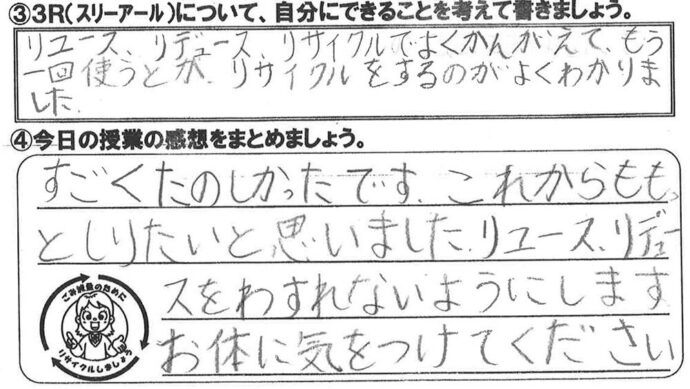 ③3R(スリーアール)について、自分にできることを考えて書きましょう。
リユース、リデュース、リサイクルでよくかんがえて、もう
一回使うとか、リサイクルをするのがよくわかりま
した
④今日の授業の感想をまとめましょう。
すごくたのしかったです。これからももっ
としりたいと思いました。リユース、リデュー
スをわすれないようにします
お体に気をつけてください
ごみ減量のために
リサイクルしましょう